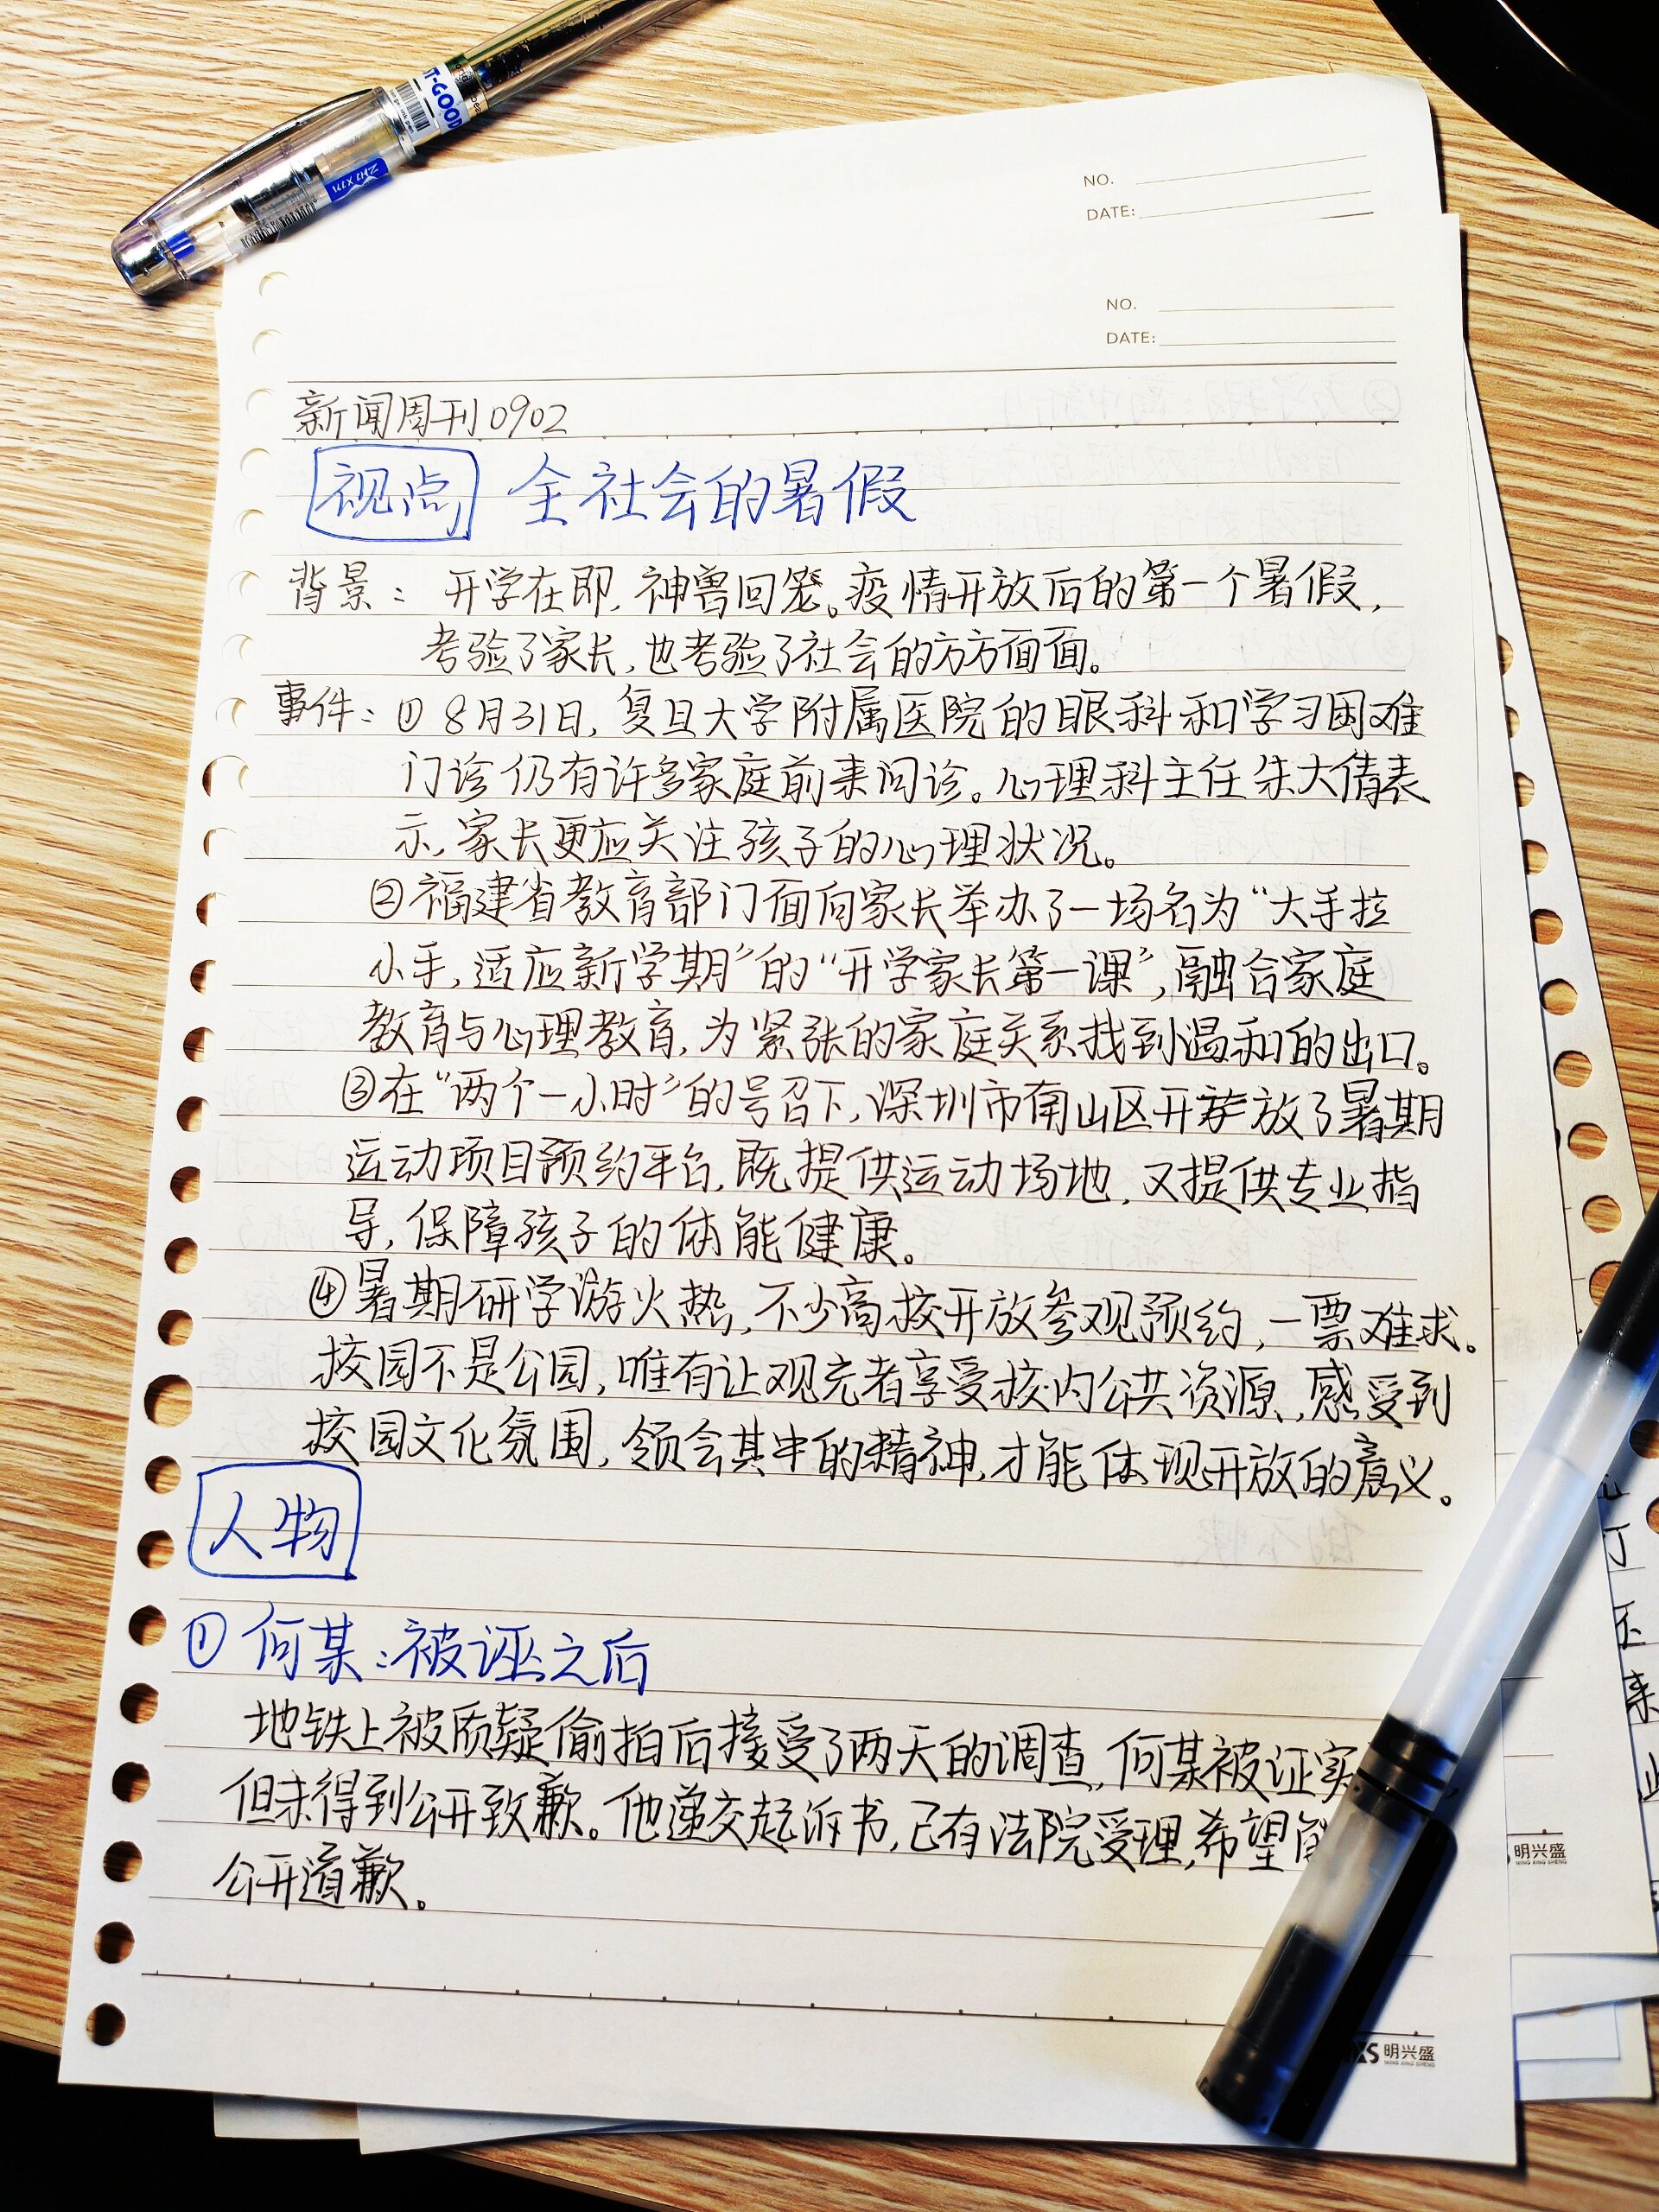 T-GOOD
NO.
DATE:
NO.
DATE:
新闻周刊0902
视点 全社会的暑假
背景：开学在即，神兽回笼。疫情开放后的第一个暑假，
考验了家长，也考验了社会的方方面面。
事件：①8月31日，复旦大学附属医院的眼科和学习困难
门诊仍有许多家庭前来问诊。心理科主任朱大倩表
示，家长更应关注孩子的心理状况。
②福建省教育部门面向家长举办了一场名为“大手拉
小手，适应新学期”的“开学家长第一课”，融合家庭
教育与心理教育，为紧张的家庭关系找到温和的出口。
③在“两个一小时”的号召下，深圳市南山区开放了暑期
运动项目预约平台，既提供运动场地，又提供专业指
导，保障孩子的体能健康。
④暑期研学游火热，不少高校开放参观预约，一票难求。
校园不是公园，唯有让观光者享受校内公共资源，感受到
校园文化氛围，领会其中的精神，才能体现开放的意义。
人物
①何某：被诬之后
地铁上被质疑偷拍后接受了两天的调查，何某被证实
但未得到公开致歉。他递交起诉书，已有法院受理，希望
公开道歉。
明兴盛
MING XING SHENG
MXS 明兴盛
MING XING SHENG